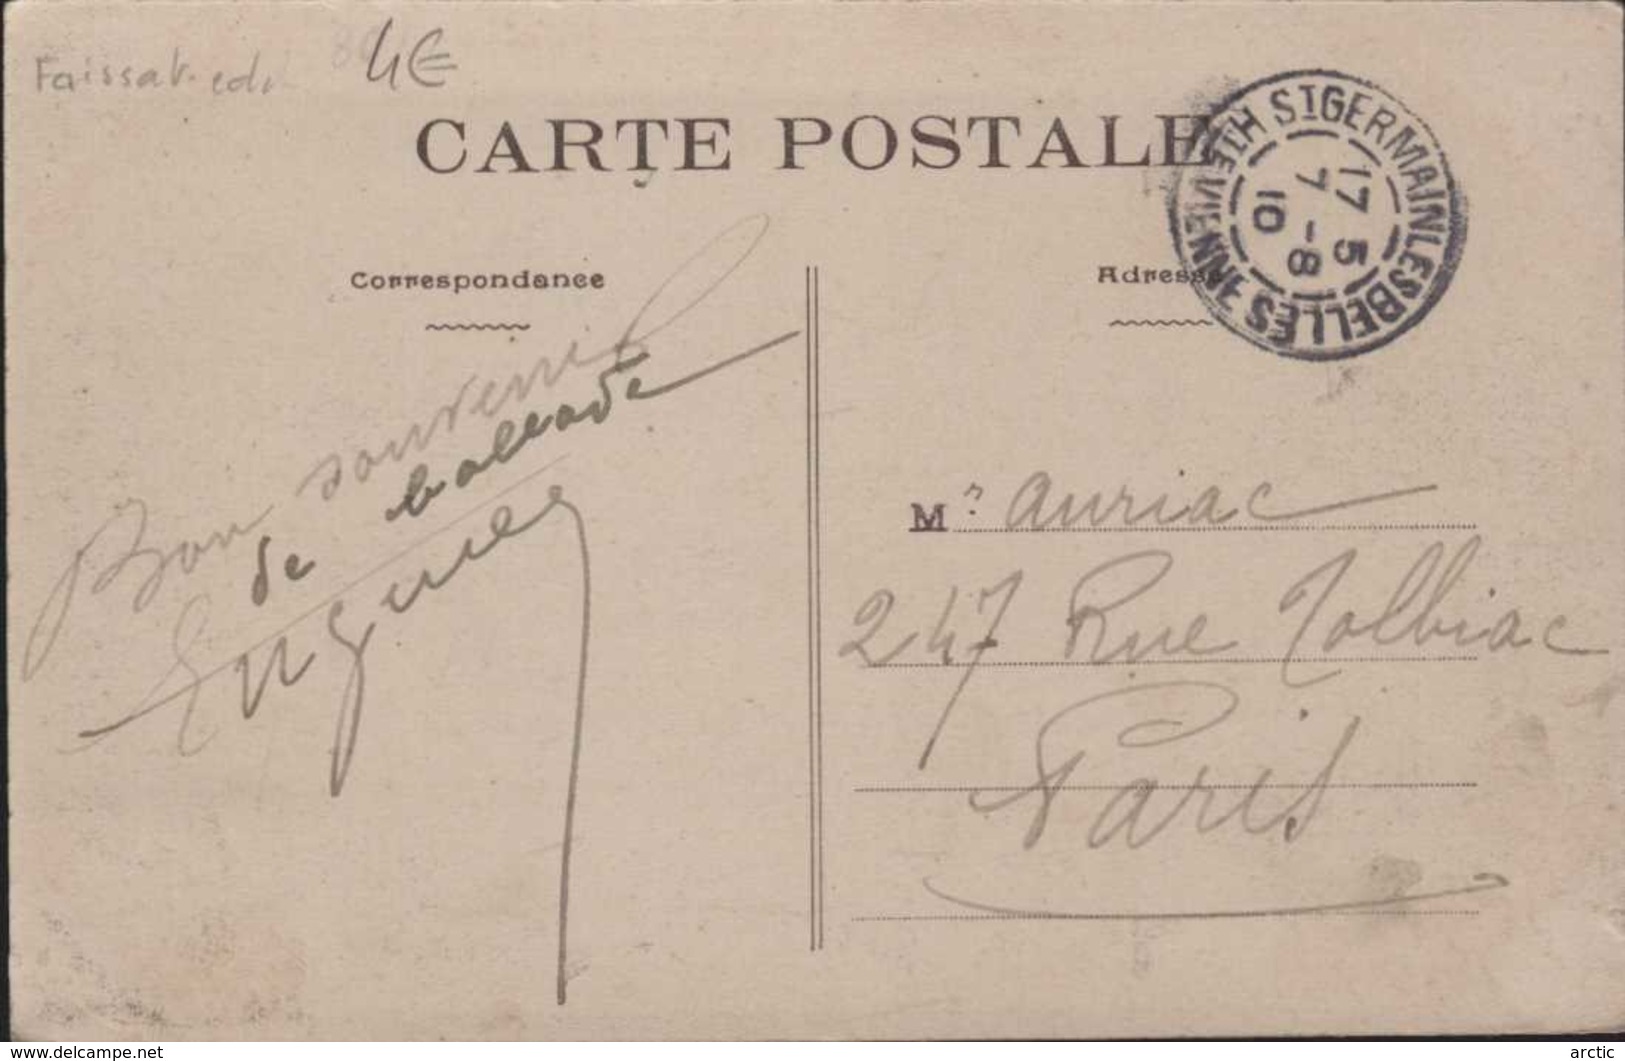 Faissat. edi
4€
CARTE POSTALE
ST GERMAIN LES BELLES HTE VIENNE
17 5
7 -8
10
Correspondance
Adresse
Bon souvenir
de ballade
Mr. Auriac
247 Rue Tolbiac
Paris
www.delcampe.net
arctic